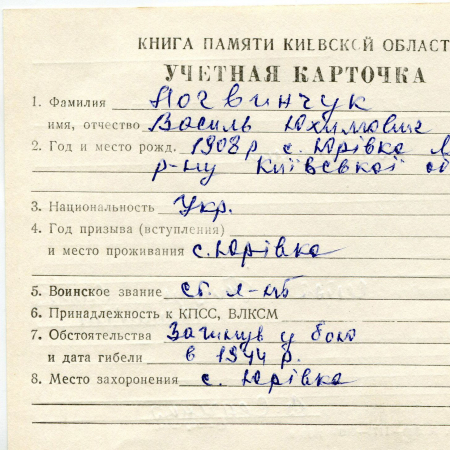 КНИГА ПАМЯТИ КИЕВСКОЙ ОБЛАСТ
УЧЕТНАЯ КАРТОЧКА
1. Фамилия Логвинчук
имя, отчество Василь Юхимович
2. Год и место рожд. 1908 р с. Юрівка М
р-ну Київської об
3. Национальность Укр.
4. Год призыва (вступления)
и место проживания с. Юрівка
5. Воинское звание ст. л-нт
6. Принадлежность к КПСС, ВЛКСМ
7. Обстоятельства Загинув у бою
и дата гибели в 1944 р.
8. Место захоронения с. Юрівка